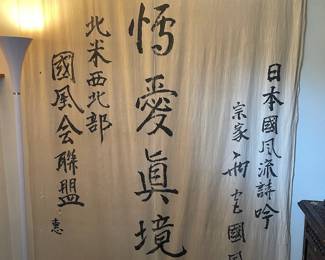 日本國風流詩吟
宗家 國
愽愛眞境
北米西北部
國風会聯盟 恵